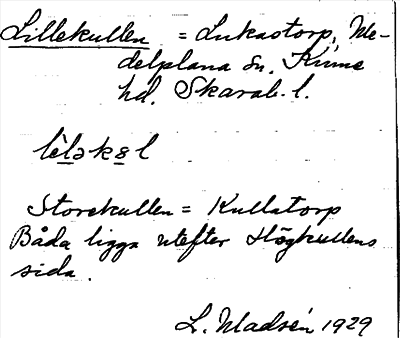 Lillekullen = Lukastorp, Me-
delplana sn. Kinne
hd. Skarab. l.
lìləkȣl
Storekullen = Kullatorp
Båda ligga utefter Högkullens
sida.
L. Madsén 1929